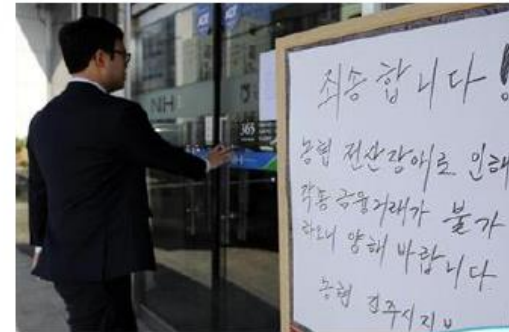 NH
365
죄송합니다!
농협 전산장애로 인해
각종 금융거래가 불가
하오니 양해 바랍니다
농협 진주시지부